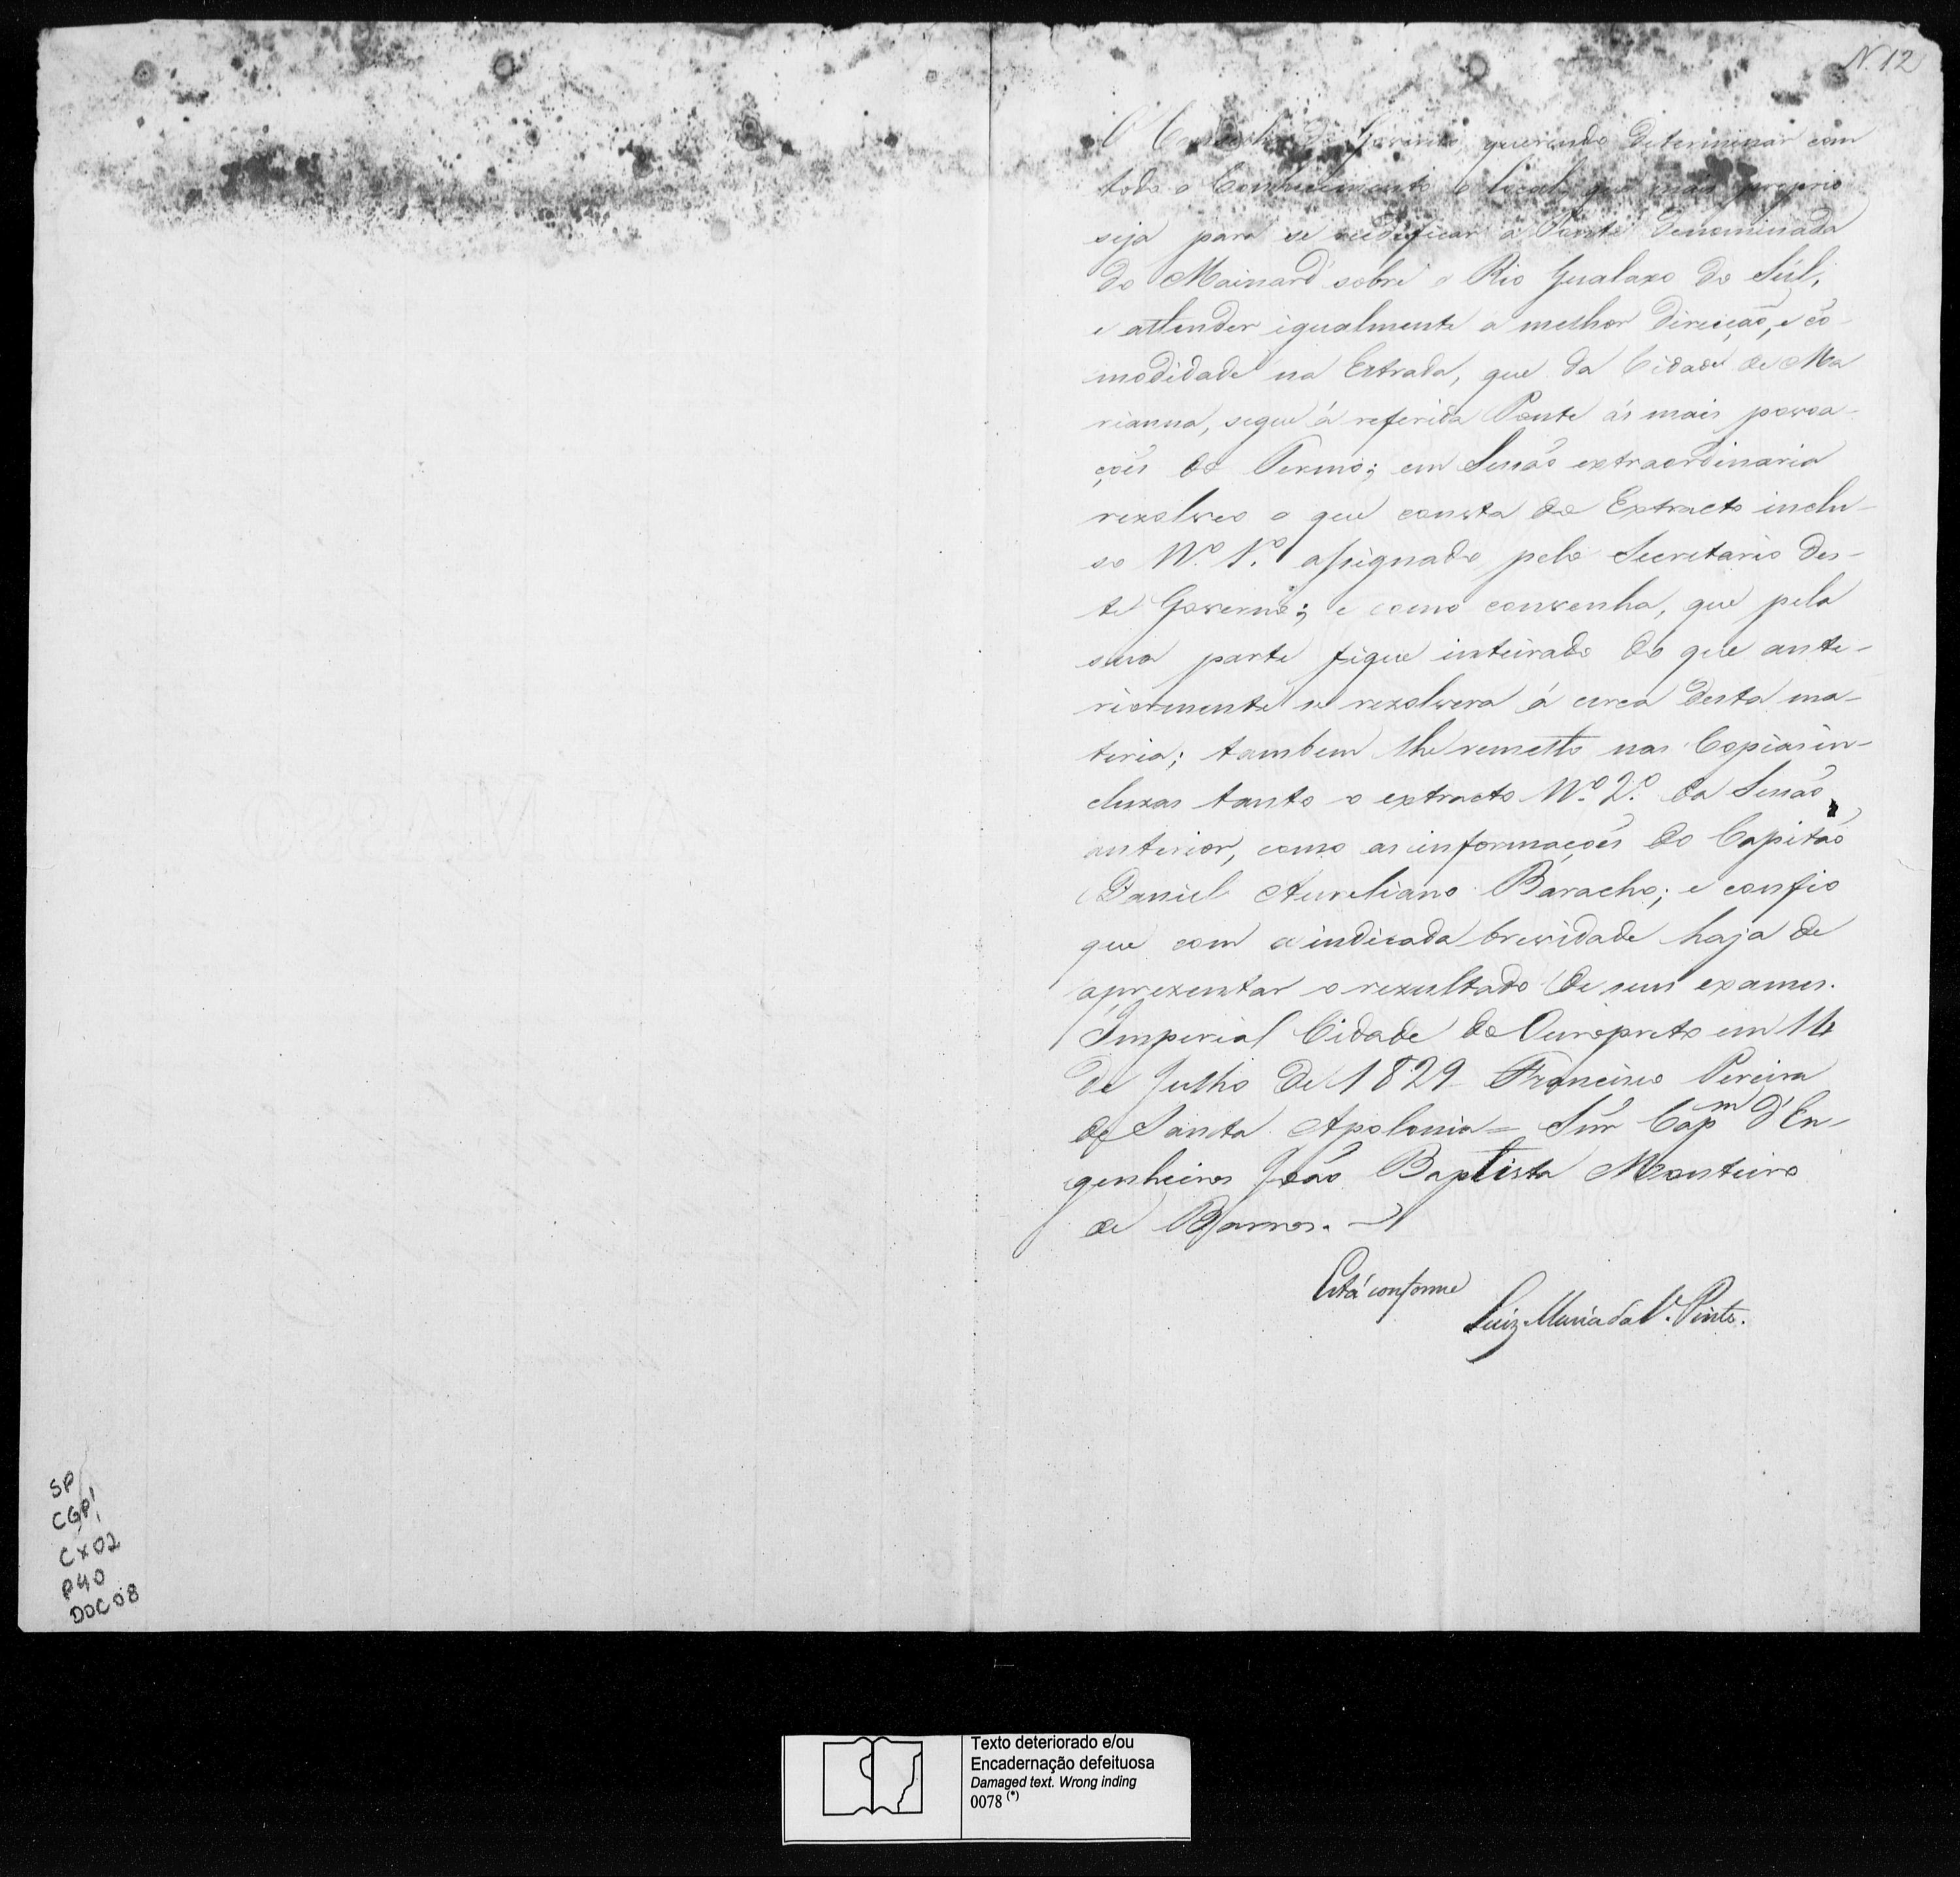 N. 12
O Conselho do Governo querendo determinar com
todo o Conhecimento o local, que mais proprio
seja para se reedificar a Ponte denominada
do Mainard sobre o Rio Gualaxo do Sul,
e attender igualmente a melhor direcção, e cõ-
modidade na Estrada, que da Cidade de Ma
rianna, segue á referida Ponte ás mais povoa-
ções do Termo; em Sessão extraordinaria
rezolveo o que consta do Extracto inclu-
so N.º 1.º assignado pelo Secretario des-
te Governo; e como convenha, que pela
sua parte fique inteirado do que ante-
riormente se rezolvera á cerca desta ma-
teria; tambem lhe remetto nas Copias in-
cluzas tanto o extracto N.º 2.º da Sessão
anterior, como as informações do Capitão
Daniel Aureliano Baracho; e confio
que com a indicada brevidade haja de
aprezentar o rezultado de seus exames.
Imperial Cidade do Ouropreto em 14
de Julho de 1829 Francisco Pereira
de Santa Apolonia = Snr Cap.m d'En-
genheiros João Baptista Monteiro
de Barros.
Está conforme
Luiz Maria da S.ª Pinto.
SP
CGP1
Cx02
P40
DOC 08
Texto deteriorado e/ou
Encadernação defeituosa
Damaged text. Wrong inding
0078 (*)